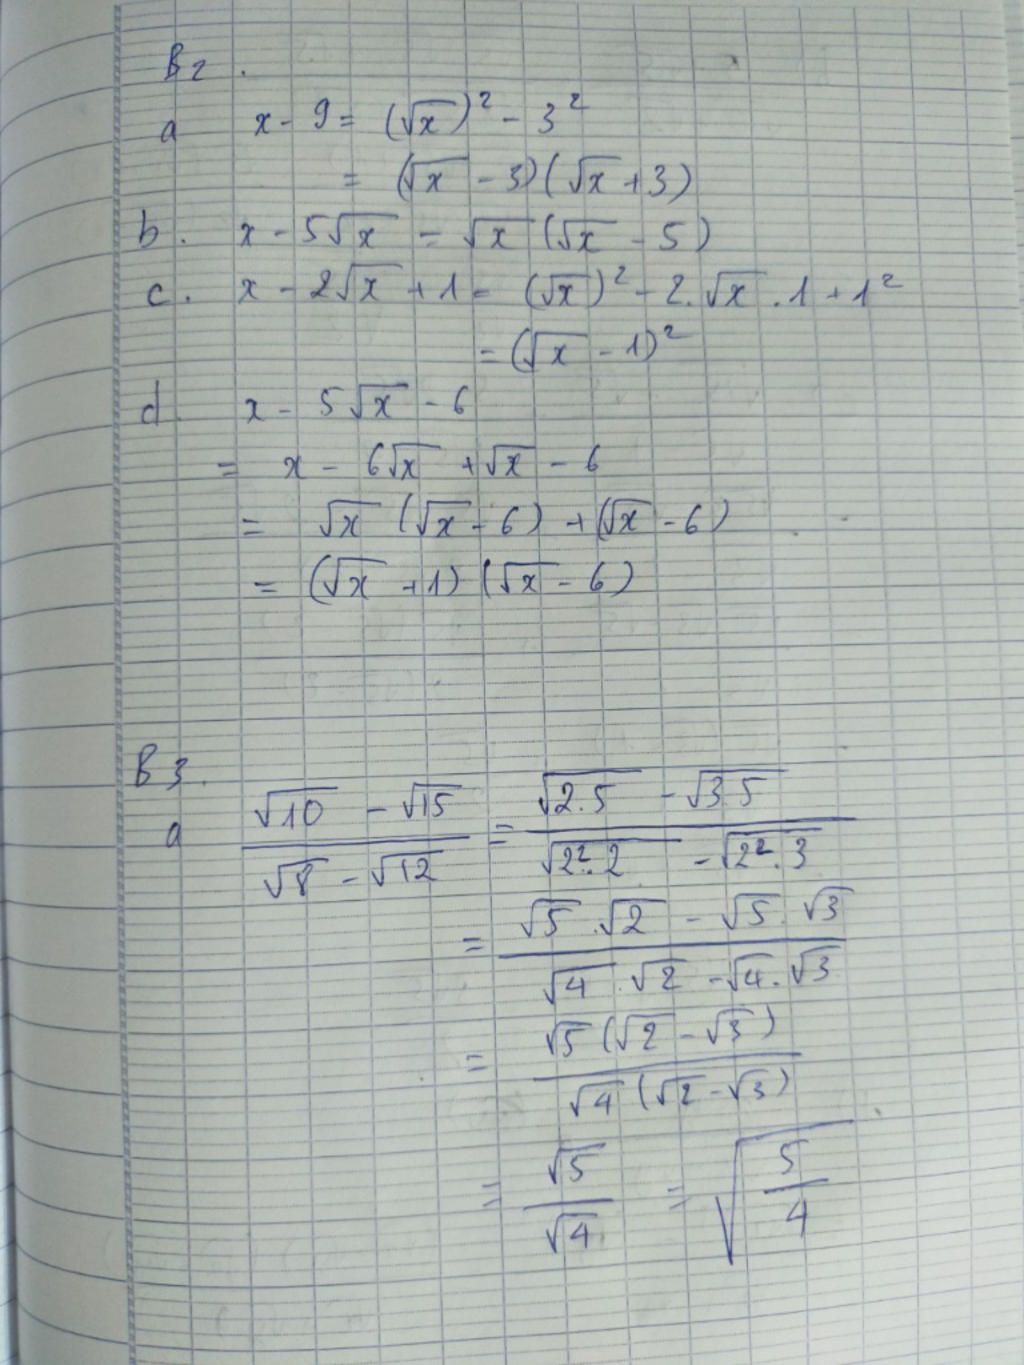 B2.
a x - 9 = (√x)² - 3²
= (√x - 3)(√x + 3)
b. x - 5√x = √x (√x - 5)
c. x - 2√x + 1 = (√x)² - 2.√x.1 + 1²
= (√x - 1)²
d. x - 5√x - 6
= x - 6√x + √x - 6
= √x (√x - 6) + (√x - 6)
= (√x + 1) (√x - 6)
B3.
a (√10 - √15)/(√8 - √12) = (√2.5 - √3.5)/(√2².2 - √2².3)
= (√5.√2 - √5.√3)/(√4.√2 - √4.√3)
= √5(√2 - √3)/√4(√2 - √3)
= √5/√4 = √(5/4)